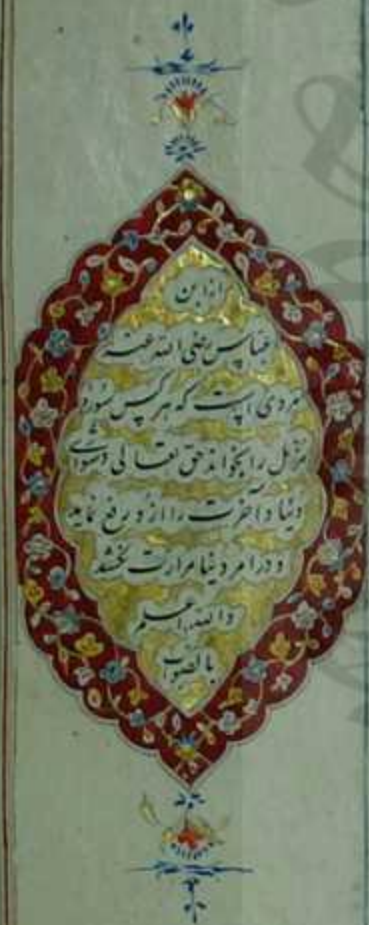 از ابن
عباس رضی الله عنه
مروی است که هر کس سوره
مزمل را بخواند حق تعالی دشواری
دنیا و آخرت را ازو رفع نماید
و در امر دنیا مرارت بخشد
والله اعلم
بالصواب